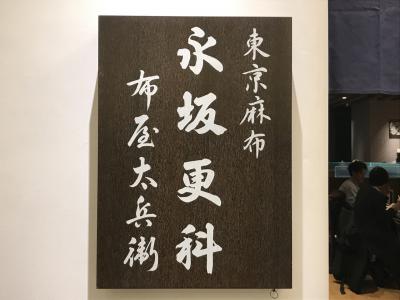 東京麻布
永坂更科
布屋太兵衛